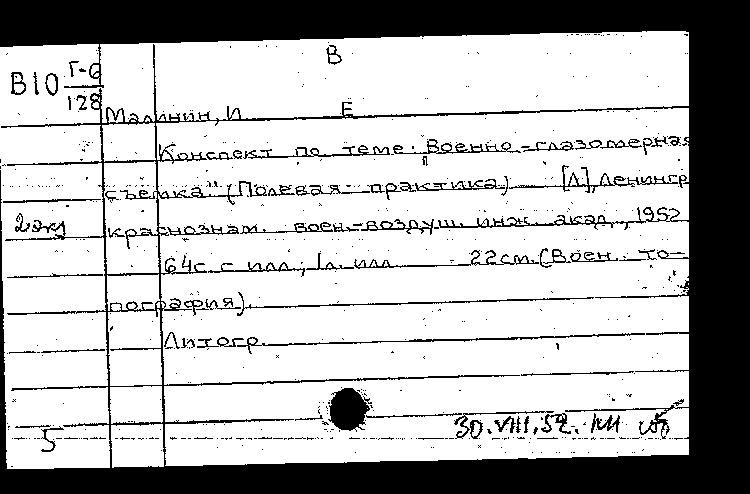 В
В10 Г-6
128
Малинин, И Е
Конспект по теме. „Военно-глазомерная
съемка" (Полевая практика) [Л], Ленингр
краснознам. воен.-воздуш. инж. акад., 1952
2 экз
64с. с илл; 1л. илл 22см. (Воен. то-
пография).
Литогр.
30.VIII.52.
5